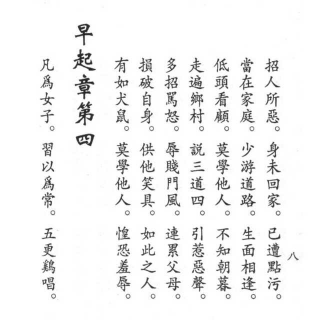 招人所惡。身未回家。已遭點污。
當在家庭。少游道路。生面相逢。
低頭看顧。莫學他人。不知朝暮。
走遍鄉村。說三道四。引惹惡聲。
多招罵怒。辱賤門風。連累父母。
損破自身。供他笑具。如此之人。
有如犬鼠。莫學他人。惶恐羞辱。
早起章第四
凡爲女子。習以爲常。五更鷄唱。
八